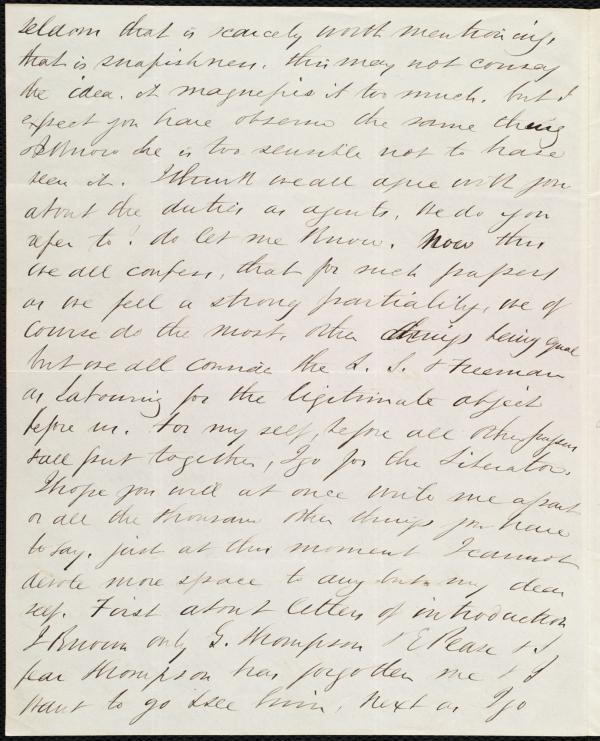 seldom that is scarcely worth mentioning,
that is snapishness. this may not convey
the idea. it magnefies it too much. but I
expect you have observed the same thing
I know he is too sensible not to have
seen it. I think we all agree with you
about the duties as agents,
refer to? do let me know. Now this
we all confess, that for such papers
as we feel a strong partiality, we of
course do the most, other things being equal
but we all consider the L. S. & Freeman
as labouring for the legitimate object
before us. For my self, before all other papers
& all put together, I go for the Liberator.
I hope you will at once write me a part
or all the thousand other things you have
to say. just at this moment I cannot
devote more space to any but my dear
self. First about letters of introduction
I know only G. Thompson & E Pease & I
fear Thompson has forgotten me & I
want to go & see him, next as I go